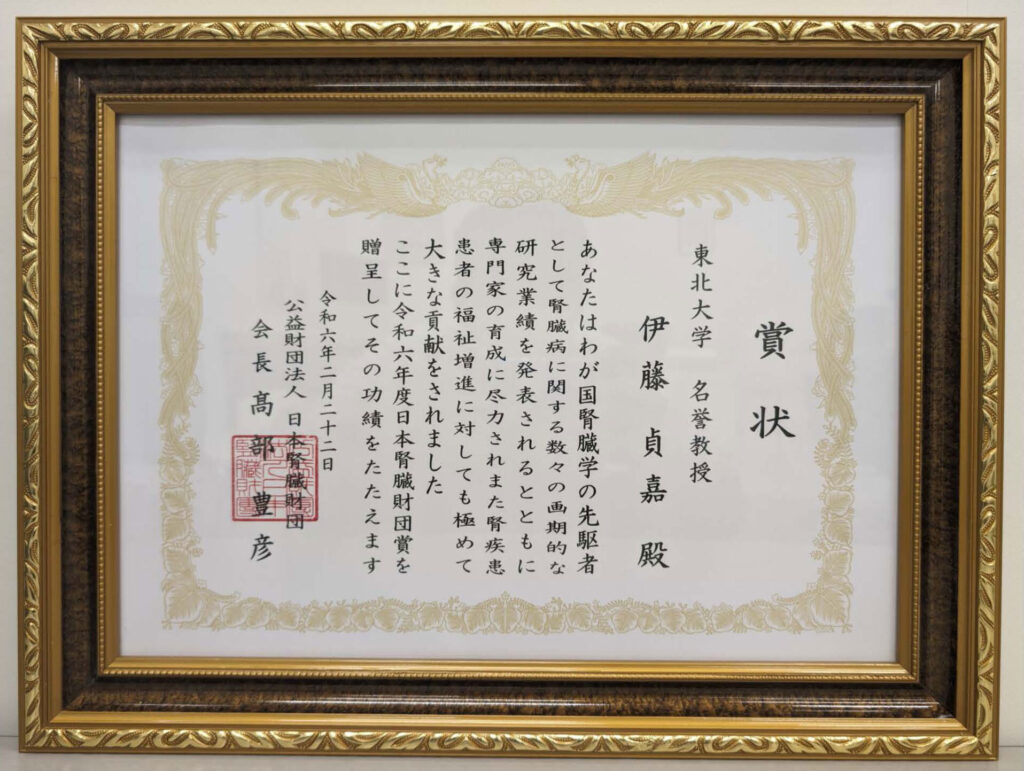 賞状
東北大学 名誉教授
伊藤貞嘉 殿
あなたはわが国腎臓学の先駆者
として腎臓病に関する数々の画期的な
研究業績を発表されるとともに
専門家の育成に尽力されまた腎疾患
患者の福祉増進に対しても極めて
大きな貢献をされました
ここに令和六年度日本腎臓財団賞を
贈呈してその功績をたたえます
令和六年二月二十二日
公益財団法人 日本腎臓財団
会長 髙部豊彦